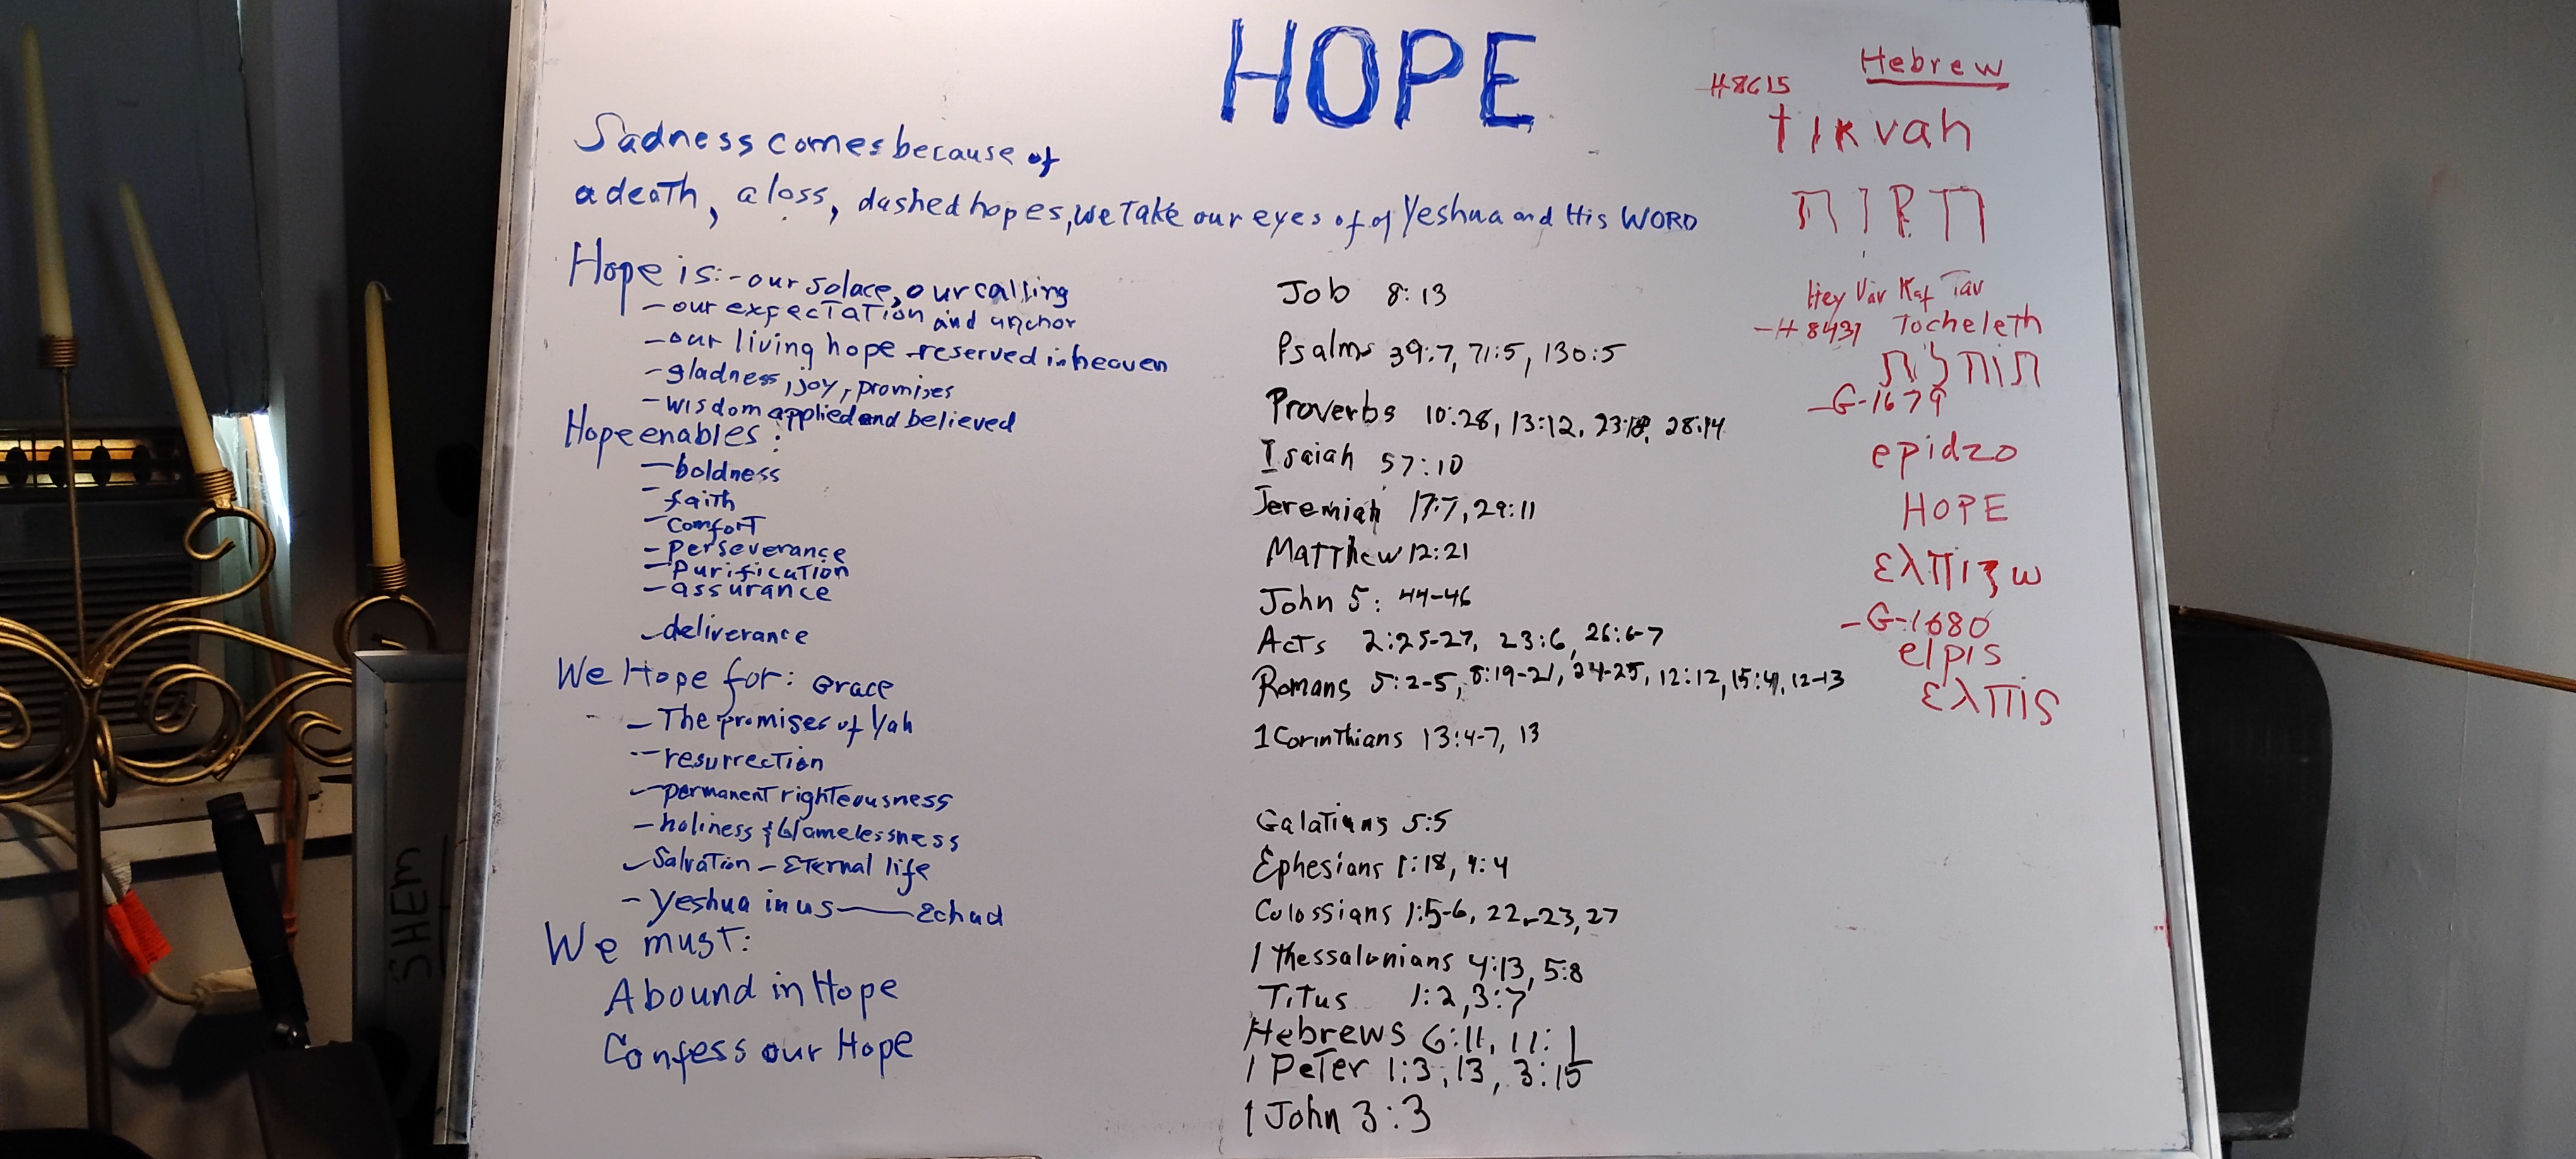 HOPE
Sadness comes because of
a death, a loss, dashed hopes, we take our eyes of of Yeshua and His WORD
Hope is:- our solace, our calling
- our expectation and anchor
- our living hope - reserved in heaven
- gladness, joy, promises
- wisdom applied and believed
Hope enables:
- boldness
- faith
- comfort
- perseverance
- purification
- assurance
- deliverance
We Hope for: Grace
- The promises of Yah
- resurrection
- permanent righteousness
- holiness & blamelessness
- Salvation - Eternal life
- Yeshua in us — Echad
We must:
Abound in Hope
Confess our Hope
Job 8:13
Psalms 39:7, 71:5, 130:5
Proverbs 10:28, 13:12, 23:18, 28:14
Isaiah 57:10
Jeremiah 17:7, 29:11
Matthew 12:21
John 5: 44-46
Acts 2:25-27, 23:6, 26:6-7
Romans 5:2-5, 8:19-21, 24-25, 12:12, 15:4, 12-13
1 Corinthians 13:4-7, 13
Galatians 5:5
Ephesians 1:18, 4:4
Colossians 1:5-6, 22-23, 27
1 Thessalonians 4:13, 5:8
Titus 1:2, 3:7
Hebrews 6:11, 11:1
1 Peter 1:3, 13, 3:15
1 John 3:3
Hebrew
H8615
tikvah
Hey Vav Kaf Tav
- H 8431 Tocheleth
תוחלת
- G-1679
epidzo
HOPE
ελπιζω
- G-1680
elpis
ελπις
SHEM